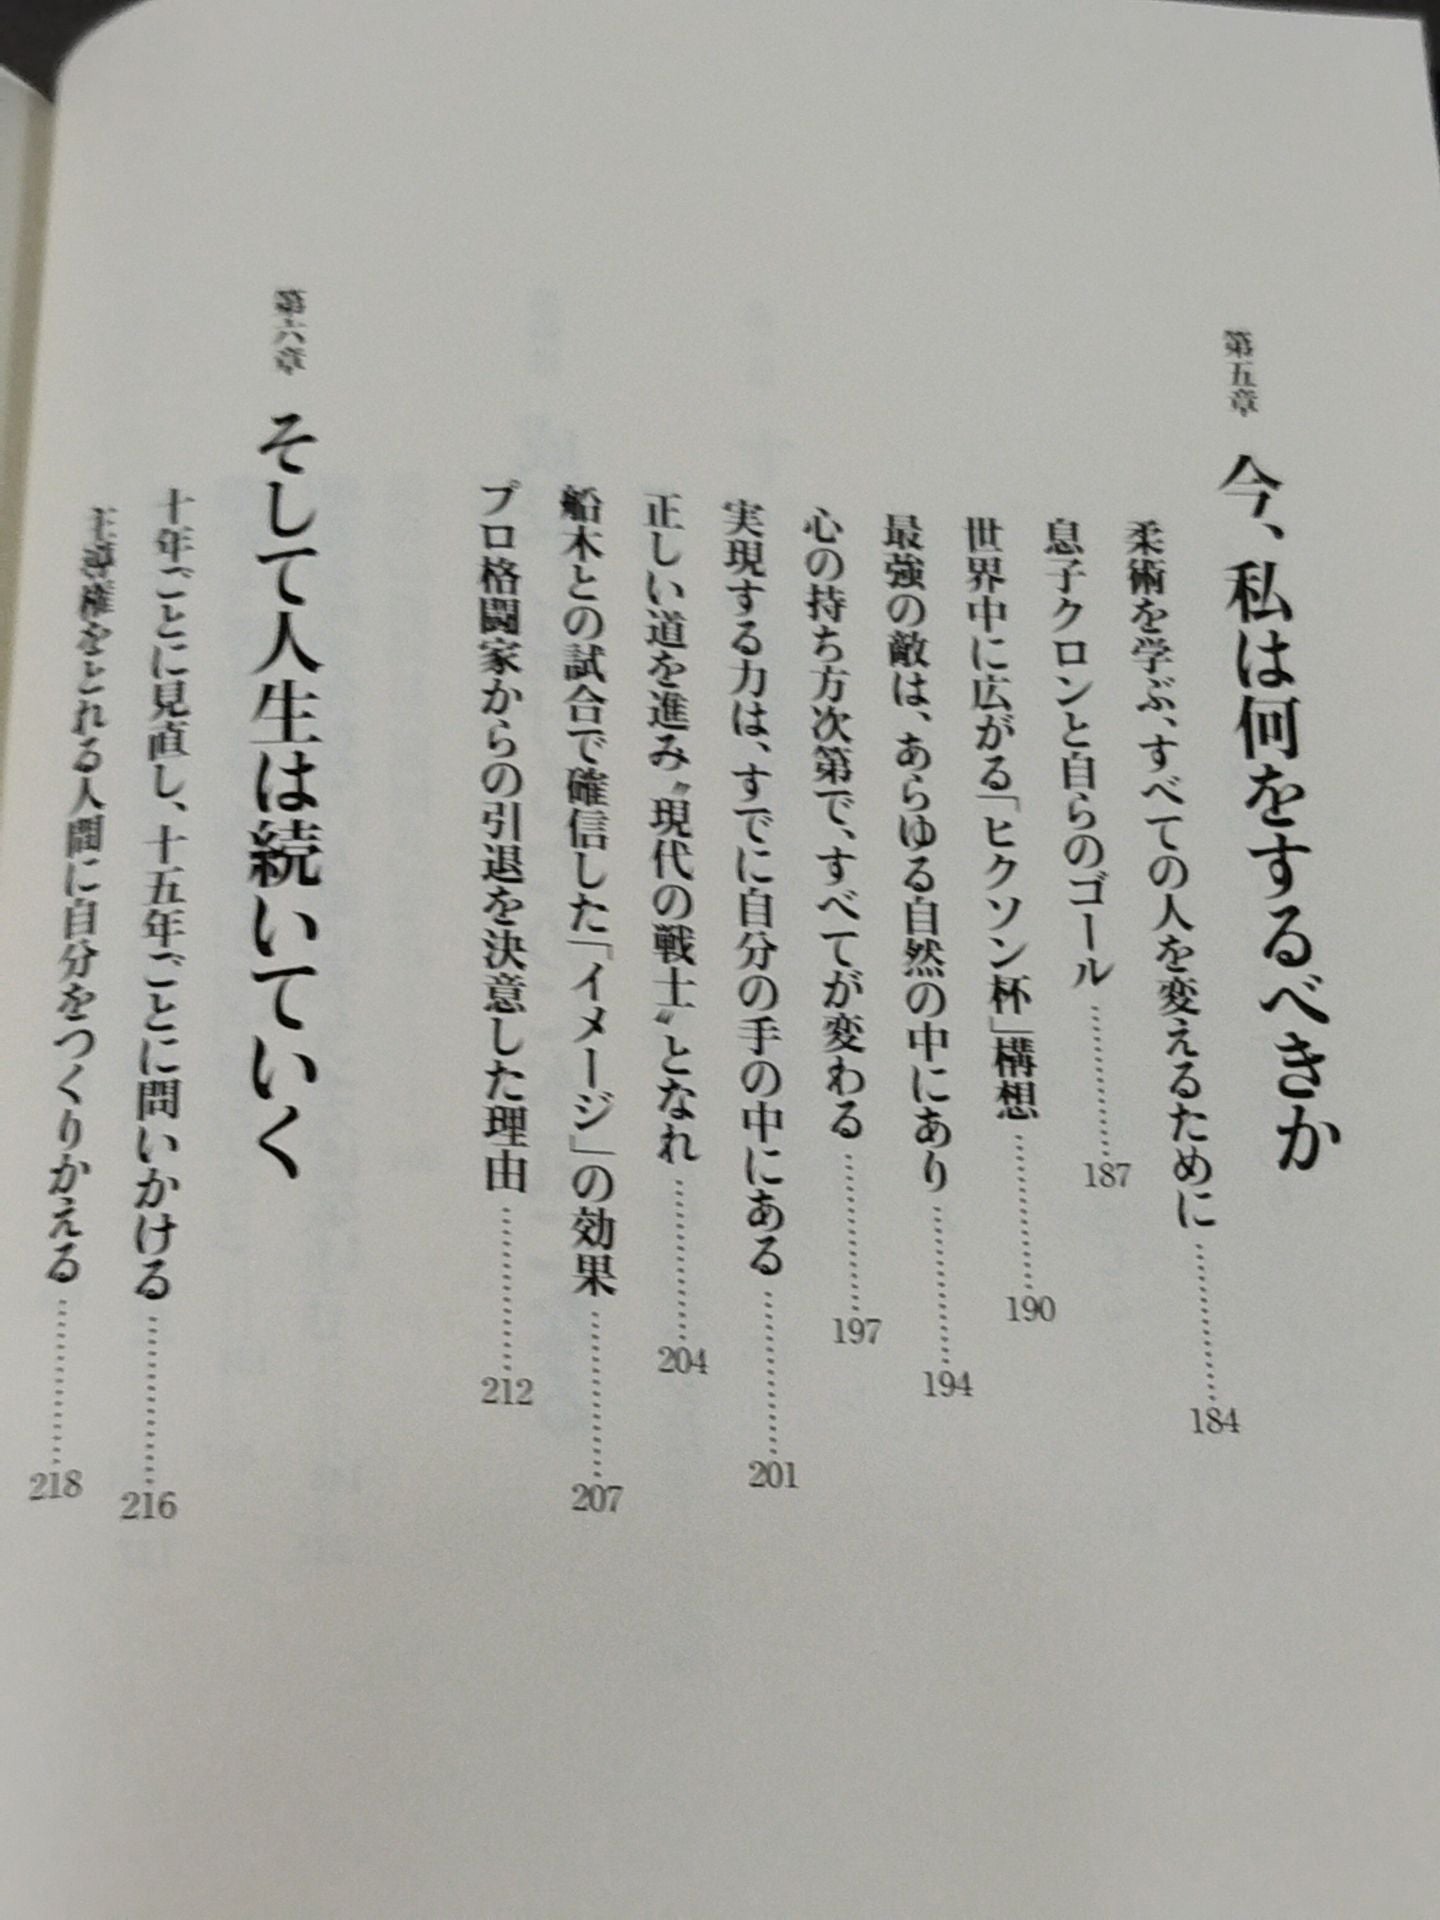 第五章 今、私は何をするべきか
柔術を学ぶ、すべての人を変えるために…………184
息子クロンと自らのゴール…………187
世界中に広がる「ヒクソン杯」構想…………190
最強の敵は、あらゆる自然の中にあり…………194
心の持ち方次第で、すべてが変わる…………197
実現する力は、すでに自分の手の中にある…………201
正しい道を進み〝現代の戦士〟となれ…………204
船木との試合で確信した「イメージ」の効果…………207
プロ格闘家からの引退を決意した理由…………212
第六章 そして人生は続いていく
十年ごとに見直し、十五年ごとに問いかける…………216
主導権をとれる人間に自分をつくりかえる…………218